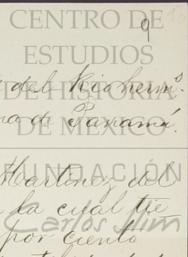 CENTRO DE
9
ESTUDIOS
del Riohermº.
DE HISTORIA
de Paraná.
DE MÉXICO
FUNDACIÓN
Martinez del
la cual tie
Carlos Slim
por ciento